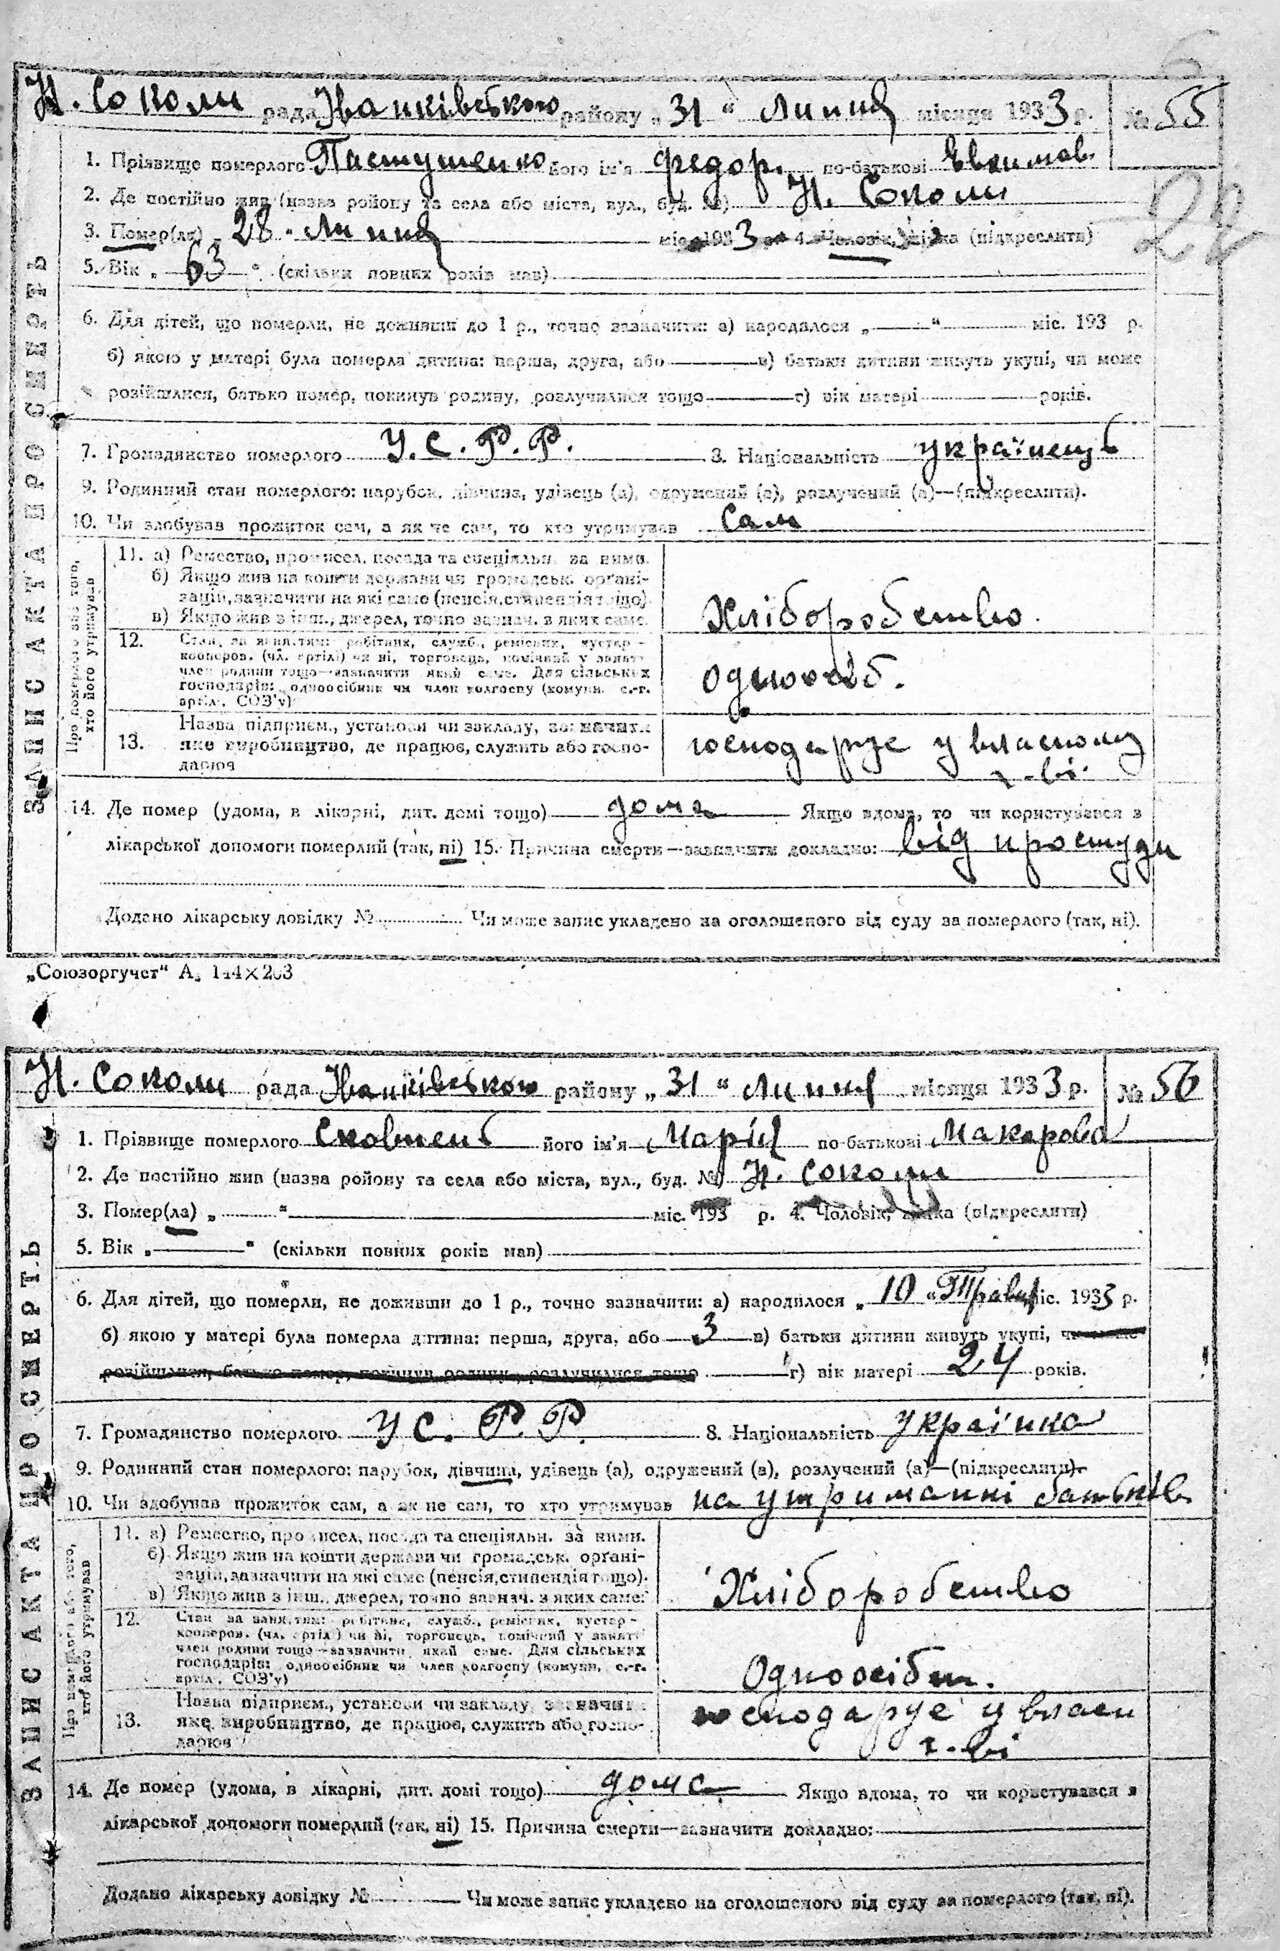 Н. Соколи рада Іванківського району „31“ Липня місяця 1933 р. № 55
1. Прізвище померлого Пастушенко його ім'я Федор. по-батькові Евхимов.
2. Де постійно жив (назва району та села або міста, вул., буд. №) Н. Соколи
3. Помер(ла) „28“ Липня міс. 1933 р. 4. Чоловік, жінка (підкреслити)
5. Вік „63“ (скільки повних років мав)
22
6. Для дітей, що померли, не доживши до 1 р., точно зазначити: а) народилося „ “ міс. 193 р.
б) якою у матері була померла дитина: перша, друга, або в) батьки дитини живуть укупі, чи може
розійшлися, батько помер, покинув родину, розлучилися тощо г) вік матері років.
7. Громадянство померлого У.С.Р.Р. 8. Національність українець
9. Родинний стан померлого: парубок, дівчина, удівець (а), одружений (а), розлучений (а)—(підкреслити).
10. Чи здобував прожиток сам, а як не сам, то хто утримував Сам
ЗАПИС АКТА ПРО СМЕРТЬ
Про померлого або того, хто його утримував
11. а) Ремество, промисел, посада та спеціяльн. за ними.
б) Якщо жив на кошти держави чи громадськ. органі-
зацій, зазначити на які саме (пенсія, стипендія тощо).
в) Якщо жив з інш. джерел, точно зазнач. з яких саме.
Хліборобство.
12. Стан за заняттям: робітник, служб., ремісник, кустар-
кооперов. (чл. артілі) чи ні, торговець, помічний у занят.
член родини тощо—зазначити який саме. Для сільських
господарів: одноосібник чи член колгоспу (комуни, с.-г.
артілі, СОЗ'у)
Одноосіб.
13. Назва підприєм., установи чи закладу, зазначити
яке виробництво, де працює, служить або госпо-
дарює
господарує у власному
г-ві.
14. Де помер (удома, в лікарні, дит. домі тощо) дома Якщо вдома, то чи користувався з
лікарської допомоги померлий (так, ні) 15. Причина смерти—зазначити докладно: від простуди
Додано лікарську довідку № Чи може запис укладено на оголошеного від суду за померлого (так, ні).
„Союзоргучет“ А₅ 144×203
Н. Соколи рада Іванківського району „31“ Липня місяця 1933 р. № 56
1. Прізвище померлого його ім'я Марія по-батькові Макарова
2. Де постійно жив (назва району та села або міста, вул., буд. №) Н. Соколи
3. Помер(ла) „ “ міс. 193 р. 4. Чоловік, жінка (підкреслити)
5. Вік „ “ (скільки повних років мав)
6. Для дітей, що померли, не доживши до 1 р., точно зазначити: а) народилося „10“ Травня міс. 1933 р.
б) якою у матері була померла дитина: перша, друга, або 3 в) батьки дитини живуть укупі, чи може
розійшлися, батько помер, покинув родину, розлучилися тощо г) вік матері 24 років.
7. Громадянство померлого У С. Р. Р. 8. Національність українка
9. Родинний стан померлого: парубок, дівчина, удівець (а), одружений (а), розлучений (а)—(підкреслити).
10. Чи здобував прожиток сам, а як не сам, то хто утримував на утриманні батьків
ЗАПИС АКТА ПРО СМЕРТЬ
Про померлого або того, хто його утримував
11. а) Ремество, промисел, посада та спеціяльн. за ними.
б) Якщо жив на кошти держави чи громадськ. органі-
зацій, зазначити на які саме (пенсія, стипендія тощо).
в) Якщо жив з інш. джерел, точно зазнач. з яких саме:
Хліборобство
12. Стан за заняттям: робітник, служб., ремісник, кустар-
кооперов. (чл. артілі) чи ні, торговець, помічний у занят.
член родини тощо—зазначити який саме. Для сільських
господарів: одноосібник чи член колгоспу (комуни, с.-г.
артілі, СОЗ'у)
Одноосібн.
13. Назва підприєм., установи чи закладу, зазначити
яке виробництво, де працює, служить або госпо-
дарює
господарує у власн
г-ві
14. Де помер (удома, в лікарні, дит. домі тощо) дома Якщо вдома, то чи користувався з
лікарської допомоги померлий (так, ні) 15. Причина смерти—зазначити докладно:
Додано лікарську довідку № Чи може запис укладено на оголошеного від суду за померлого (так, ні).